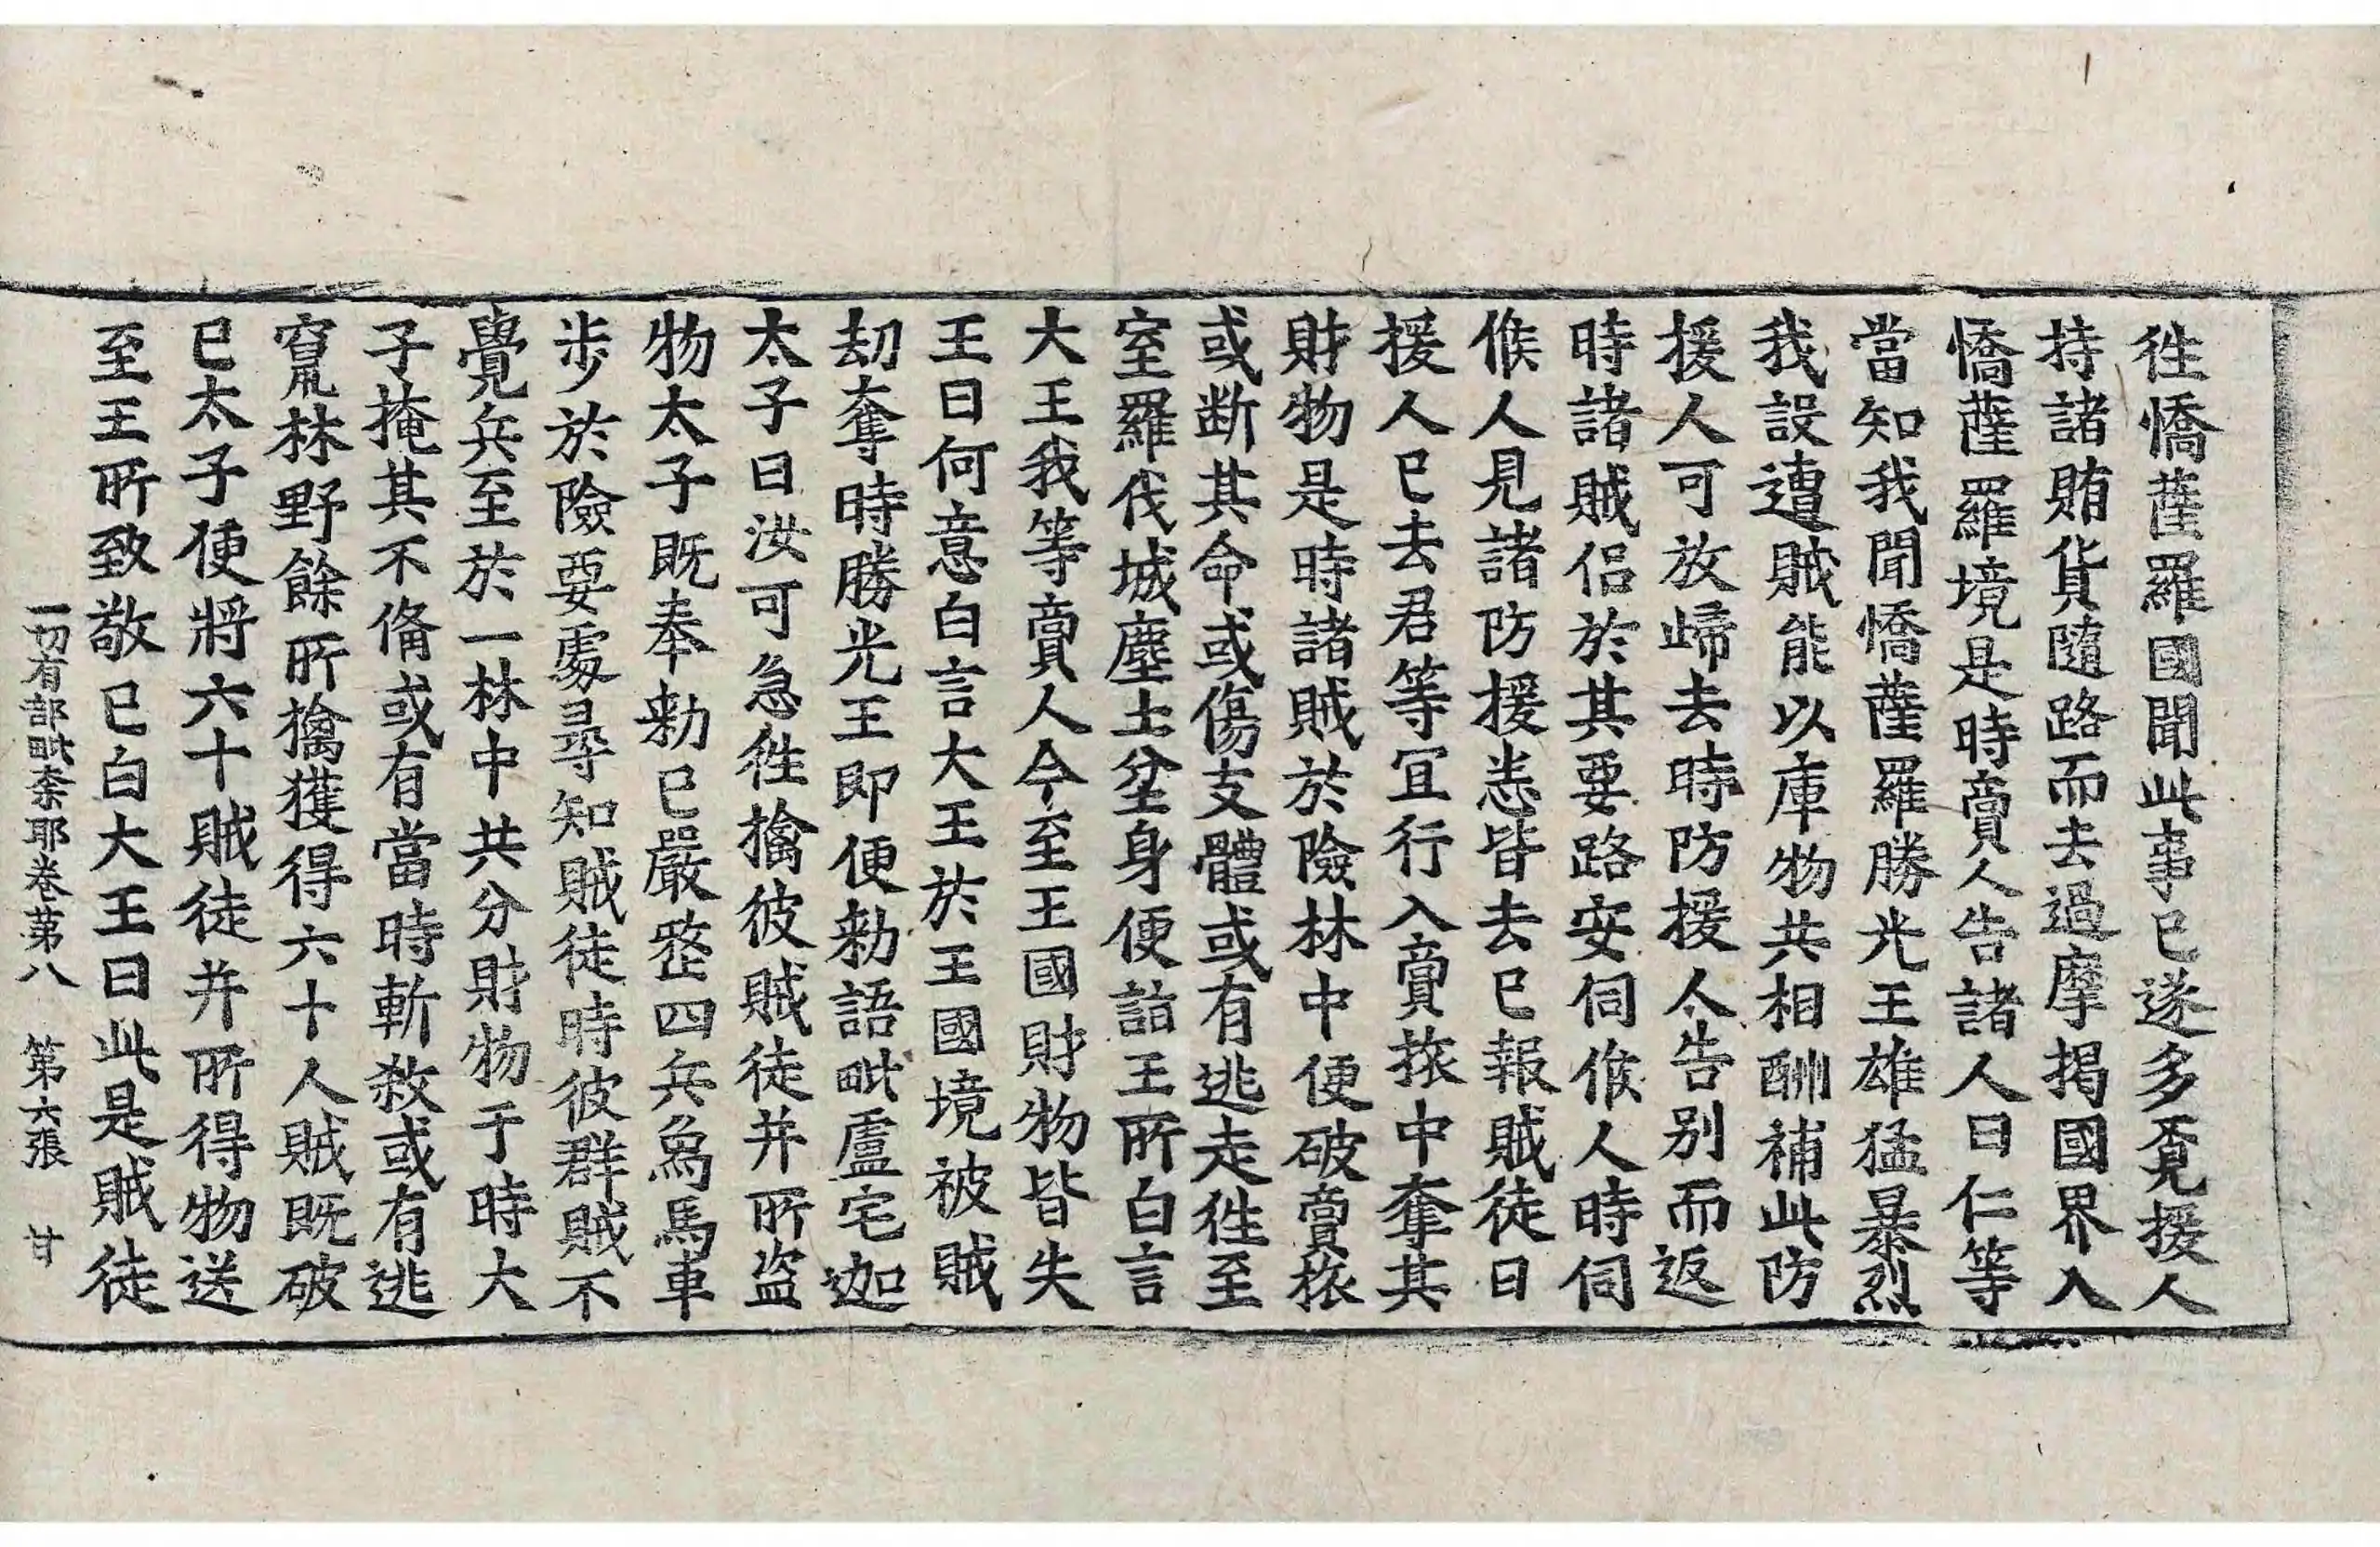 徃憍薩羅國聞此事已遂多覔援人
持諸賄貨隨路而去過摩揭國界入
憍薩羅境是時賣人告諸人曰仁等
當知我聞憍薩羅勝光王雄猛暴烈
我設遭賊能以庫物共相酬補此防
援人可放歸去時防援人告别而返
時諸賊侣於其要路安伺候人時伺
候人見諸防援悉皆去已報賊徒曰
援人已去君等宜行入賣旅中奪其
財物是時諸賊於險林中便破賣旅
或断其命或傷支體或有逃走徃至
室羅伐城塵土坌身便詣王所白言
大王我等賣人今至王國財物皆失
王曰何意白言大王於王國境被賊
劫奪時勝光王即便勑語毗盧宅迦
太子曰汝可急徃擒彼賊徒并所盗
物太子既奉勑已嚴整四兵象馬車
步於險要處尋知賊徒時彼群賊不
覺兵至於一林中共分財物于時大
子掩其不俻或有當時斬敘或有逃
竄林野餘所擒獲得六十人賊既破
已太子便將六十賊徒并所得物送
至王所致敬已白大王曰此是賊徒
一切有部毗柰耶卷第八　第六張　甘